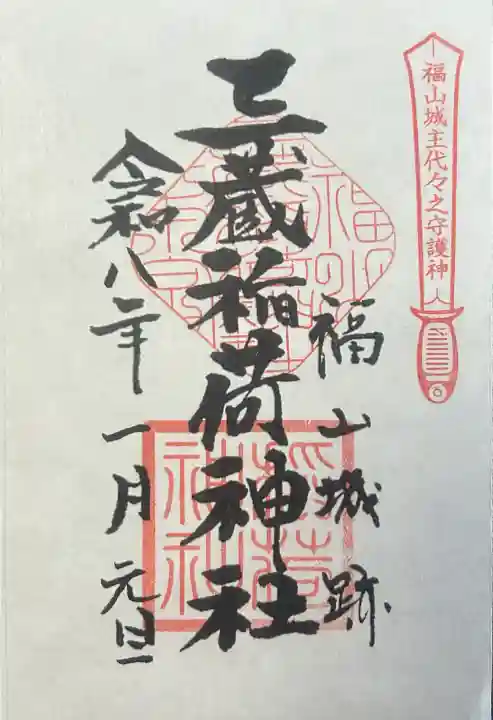 福山城主代々之守護神
福山城跡
三蔵稲荷神社
令和八年一月元旦
稲荷
神社